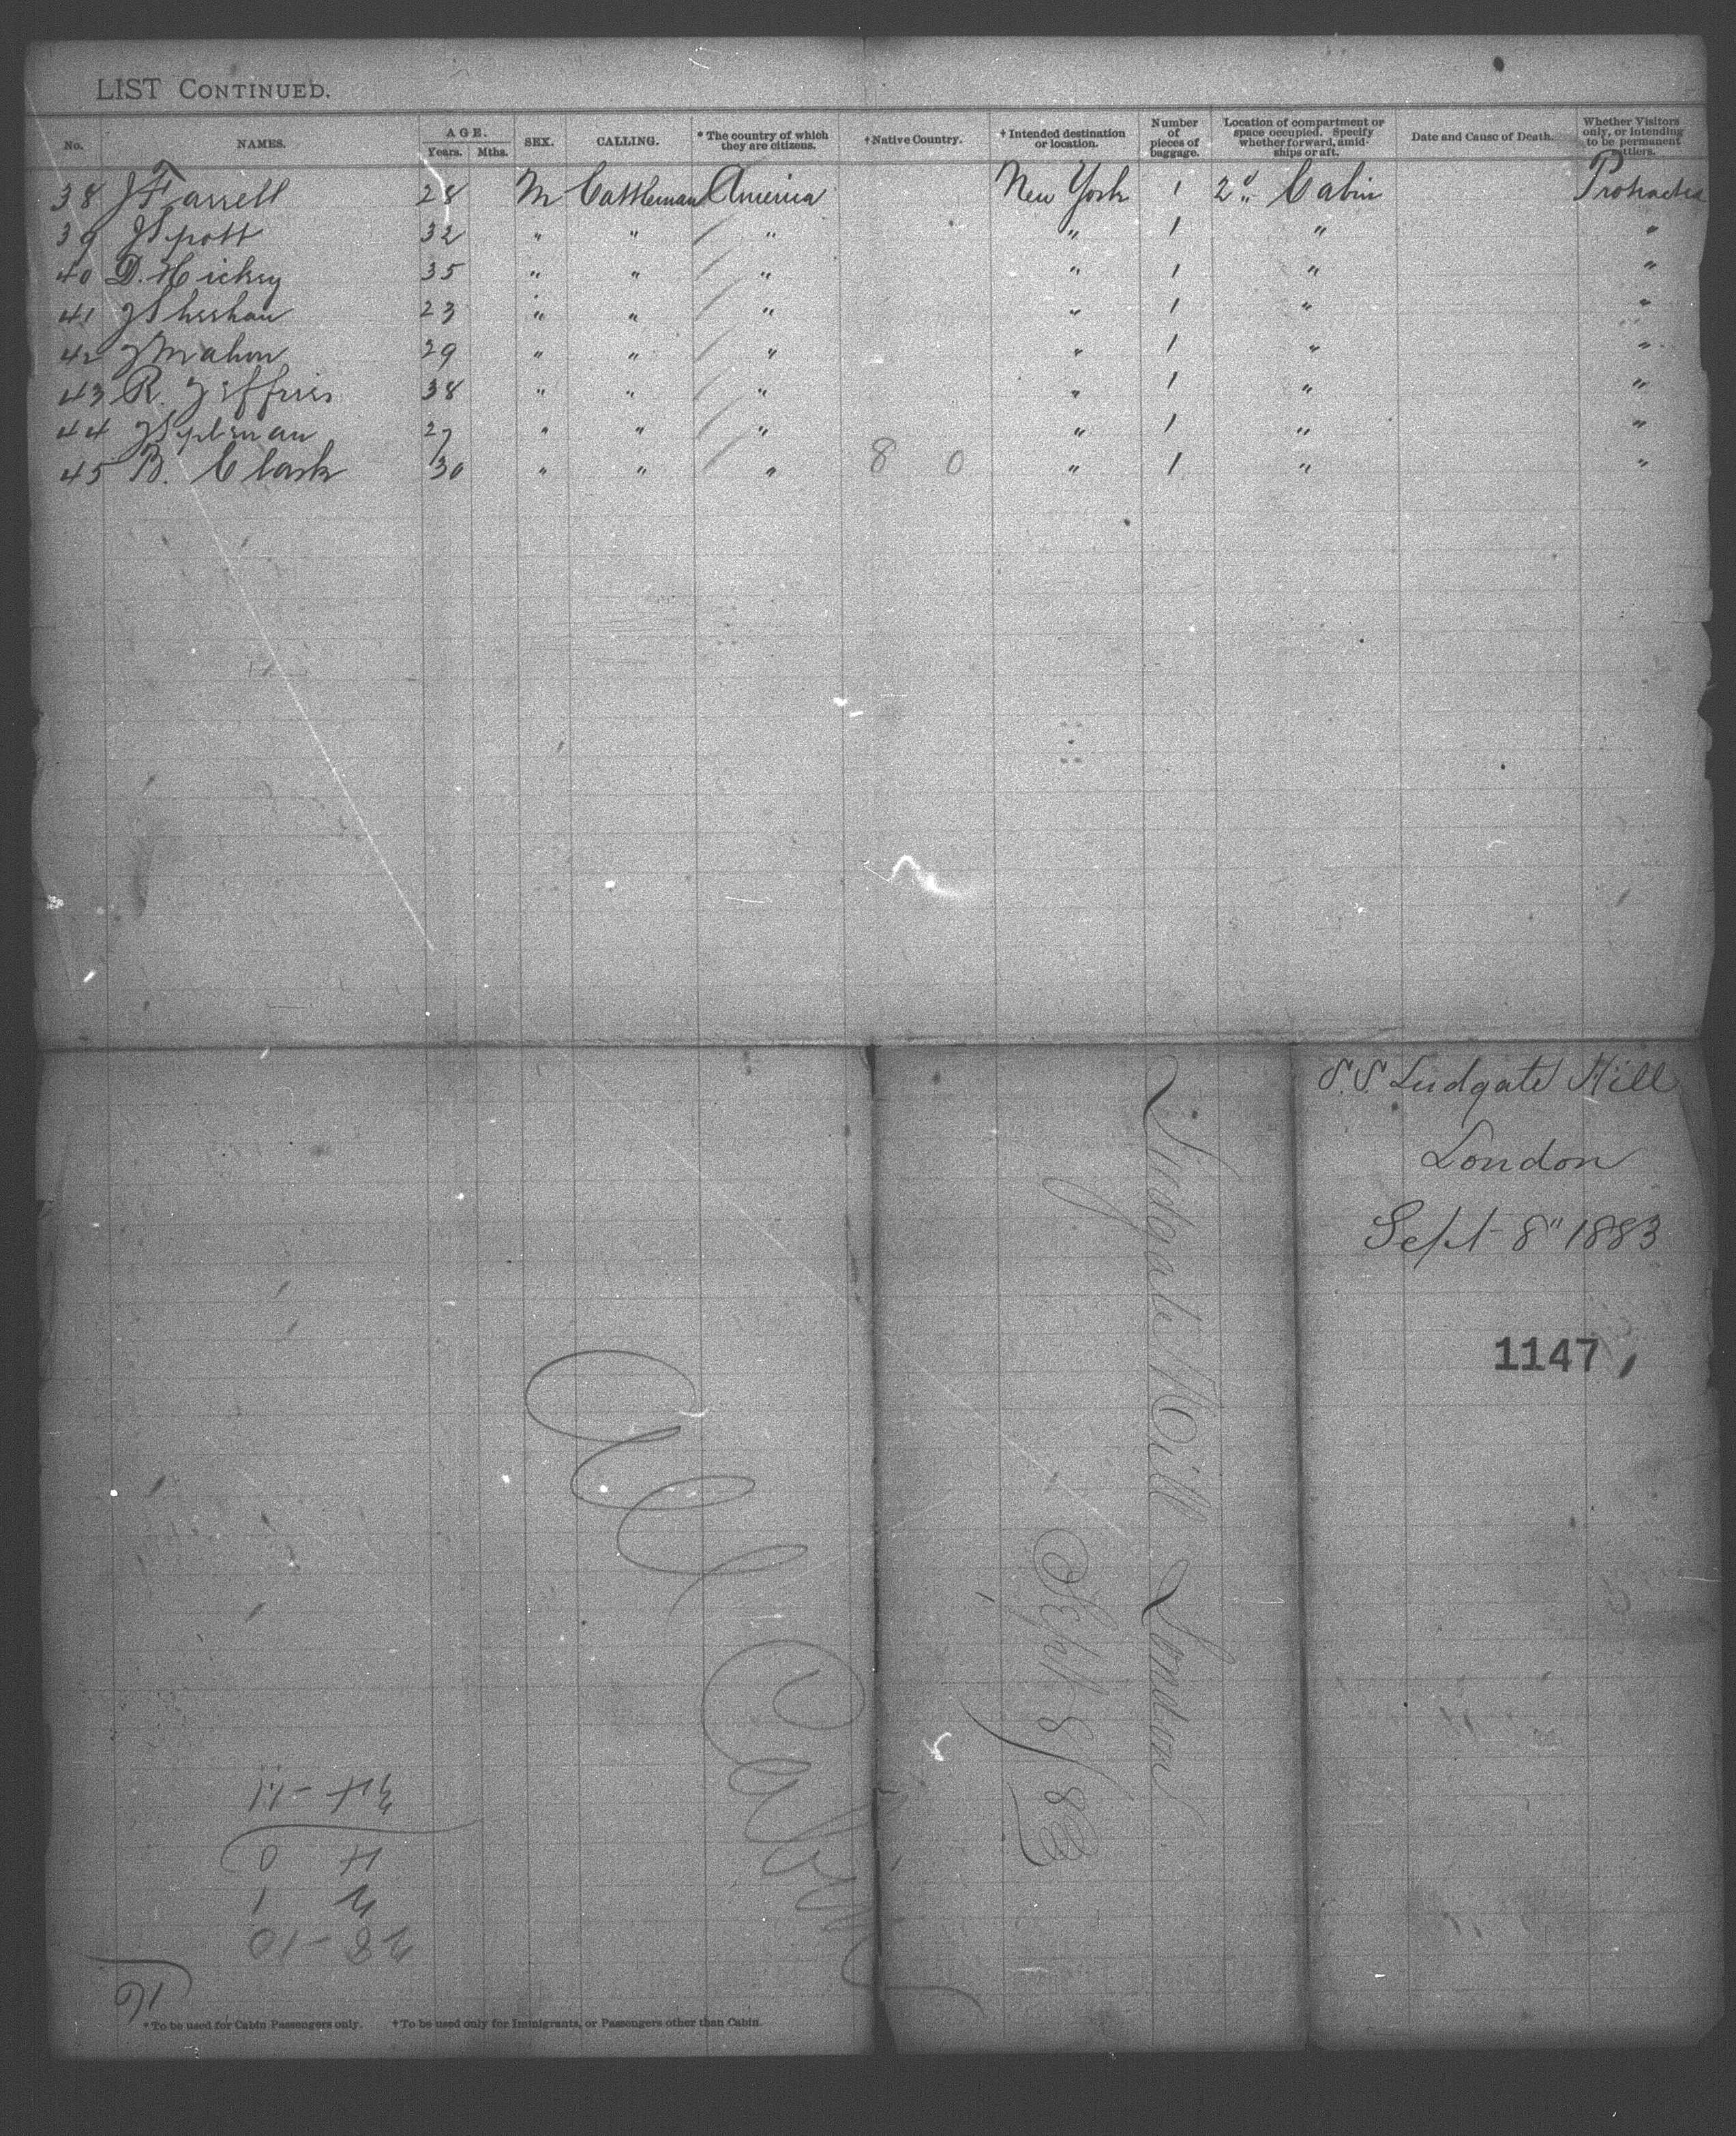 LIST CONTINUED.
No. NAMES. AGE. Years. Mths. SEX. CALLING. * The country of which they are citizens. † Native Country. † Intended destination or location. Number of pieces of baggage. Location of compartment or space occupied. Specify whether forward, amidships or aft. Date and Cause of Death. Whether Visitors only, or intending to be permanent settlers.
38 J Farrell 28 M Cattleman America New York 1 2d Cabin Protracted
39 J Spott 32 " " " " 1 " "
40 D. Hickey 35 " " " " 1 " "
41 J Sheehan 23 " " " " 1 " "
42 J Mahon 29 " " " " 1 " "
43 R. Jeffries 38 " " " " 1 " "
44 27 " " " " 1 " "
45 B. Clark 30 " " " 8 0 " 1 " "
S.S. Ludgate Hill
London
Sept 8" 1883
1147
Ludgate Hill London
Sept 8/83
All Cabin
28-10
2 1
4 0
34-11
* To be used for Cabin Passengers only. † To be used only for Immigrants, or Passengers other than Cabin.